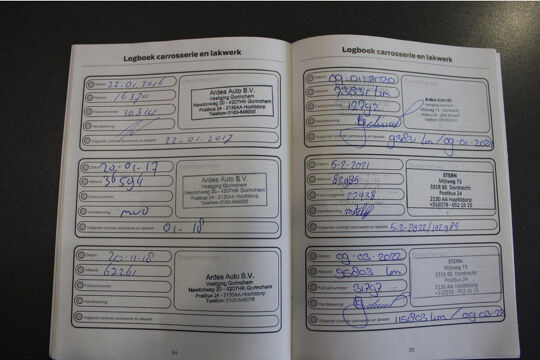 Logboek carrosserie en lakwerk
Datum 22-01-2016
Afstand 16370
Factuurnummer 30314
Handtekening
Volgende controle carrosserie en lakwerk: 22-01-2017
Ardea Auto B.V.
Vestiging Gorinchem
Newtonweg 20 - 4207HK Gorinchem
Postbus 24 - 2130AA Hoofddorp
Telefoon 0183-646000
Datum 20-01-17
Afstand 36594
Factuurnummer
Handtekening
Volgende controle carrosserie en lakwerk: 01-18
Ardea Auto B.V.
Vestiging Gorinchem
Newtonweg 20 - 4207HK Gorinchem
Postbus 24 - 2130AA Hoofddorp
Telefoon 0183-646000
Datum 20-11-18
Afstand 62261
Factuurnummer
Handtekening
Volgende controle carrosserie en lakwerk:
Ardea Auto B.V.
Vestiging Gorinchem
Newtonweg 20 - 4207HK Gorinchem
Postbus 24 - 2130AA Hoofddorp
34
Logboek carrosserie en lakwerk
Datum 09-01-2020
Afstand 73831 km
Factuurnummer 12792
Handtekening
Volgende controle carrosserie en lakwerk: 93831 km / 09-01-2021
Ardea Auto BV
Datum 5-2-2021
Afstand 82985
Factuurnummer 22438
Handtekening
Volgende controle carrosserie en lakwerk: 5-2-2022/102985
STERN
Mijlweg 73
3316 BE Dordrecht
Postbus 24
2130 AA Hoofddorp
+31(0)78 - 652 15 15
Datum 09-03-2022
Afstand 96803 km
Factuurnummer 31797
Handtekening
Volgende controle carrosserie en lakwerk: 116803 km / 09-03-23
STERN
Mijlweg 73
3316 BE Dordrecht
Postbus 24
2130 AA Hoofddorp
+31(0)78 - 652 15 15
35